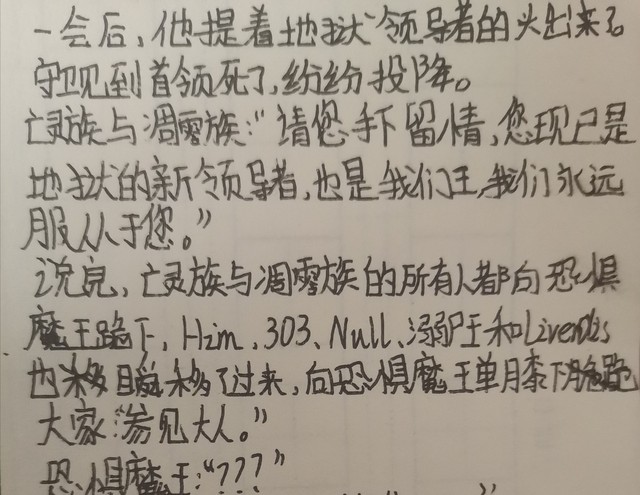 一会后，他提着地狱领导者的火出来了
守卫见到首领死了，纷纷投降。
亡灵族与凋零族：“请您手下留情，您现已是
地狱的新领导者，也是我们王，我们永远
服从于您。”
说完，亡灵族与凋零族的所有人都向恐惧
魔王跪下，Him、303、Null、溺尸王和
也移了过来，向恐惧魔王单膝下跪
大家：“参见大人。”
恐惧魔王：“？？？”